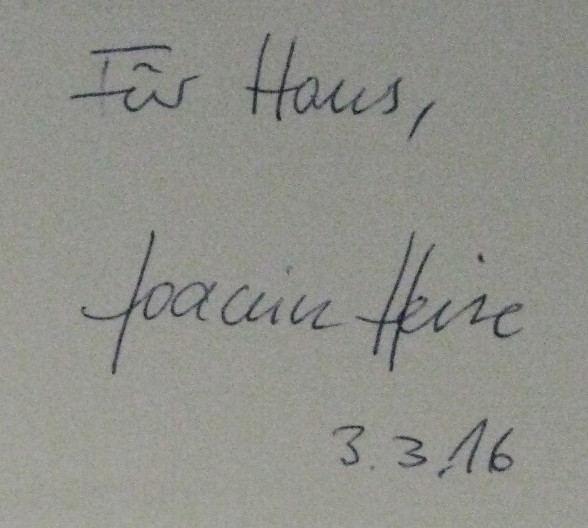 Für Hans,
Joachim Heise
3.3.16